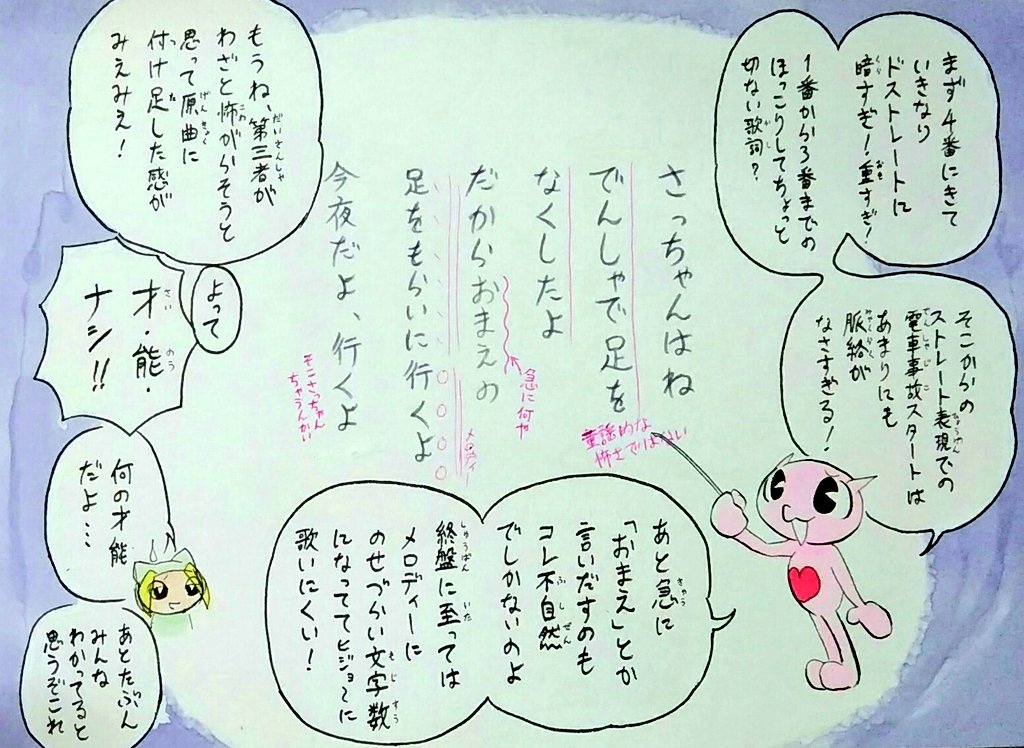 まず4番にきて
いきなり
ドストレートに
暗すぎ！重すぎ！
1番から3番までの
ほっこりしてちょっと
切ない歌詞？
そこからの
ストレート表現での
電車事故スタートは
あまりにも
脈絡が
なさすぎる！
さっちゃんはね
でんしゃで足を
なくしたよ
だからおまえの
足をもらいに行くよ
今夜だよ、行くよ
童謡的な
怖さではない
急に何や
メロディー
○○○○○
そこさっちゃん
ちゃうんかい
あと急に
「おまえ」とか
言いだすのも
コレ不自然
でしかないのよ
終盤に至っては
メロディーに
のせづらい文字数
になっててヒジョーに
歌いにくい！
もうね、第三者が
わざと怖がらそうと
思って原曲に
付け足した感が
みえみえ！
よって
才・能・
ナシ!!
何の才能
だよ…
あとたぶん
みんな
わかってると
思うぞこれ